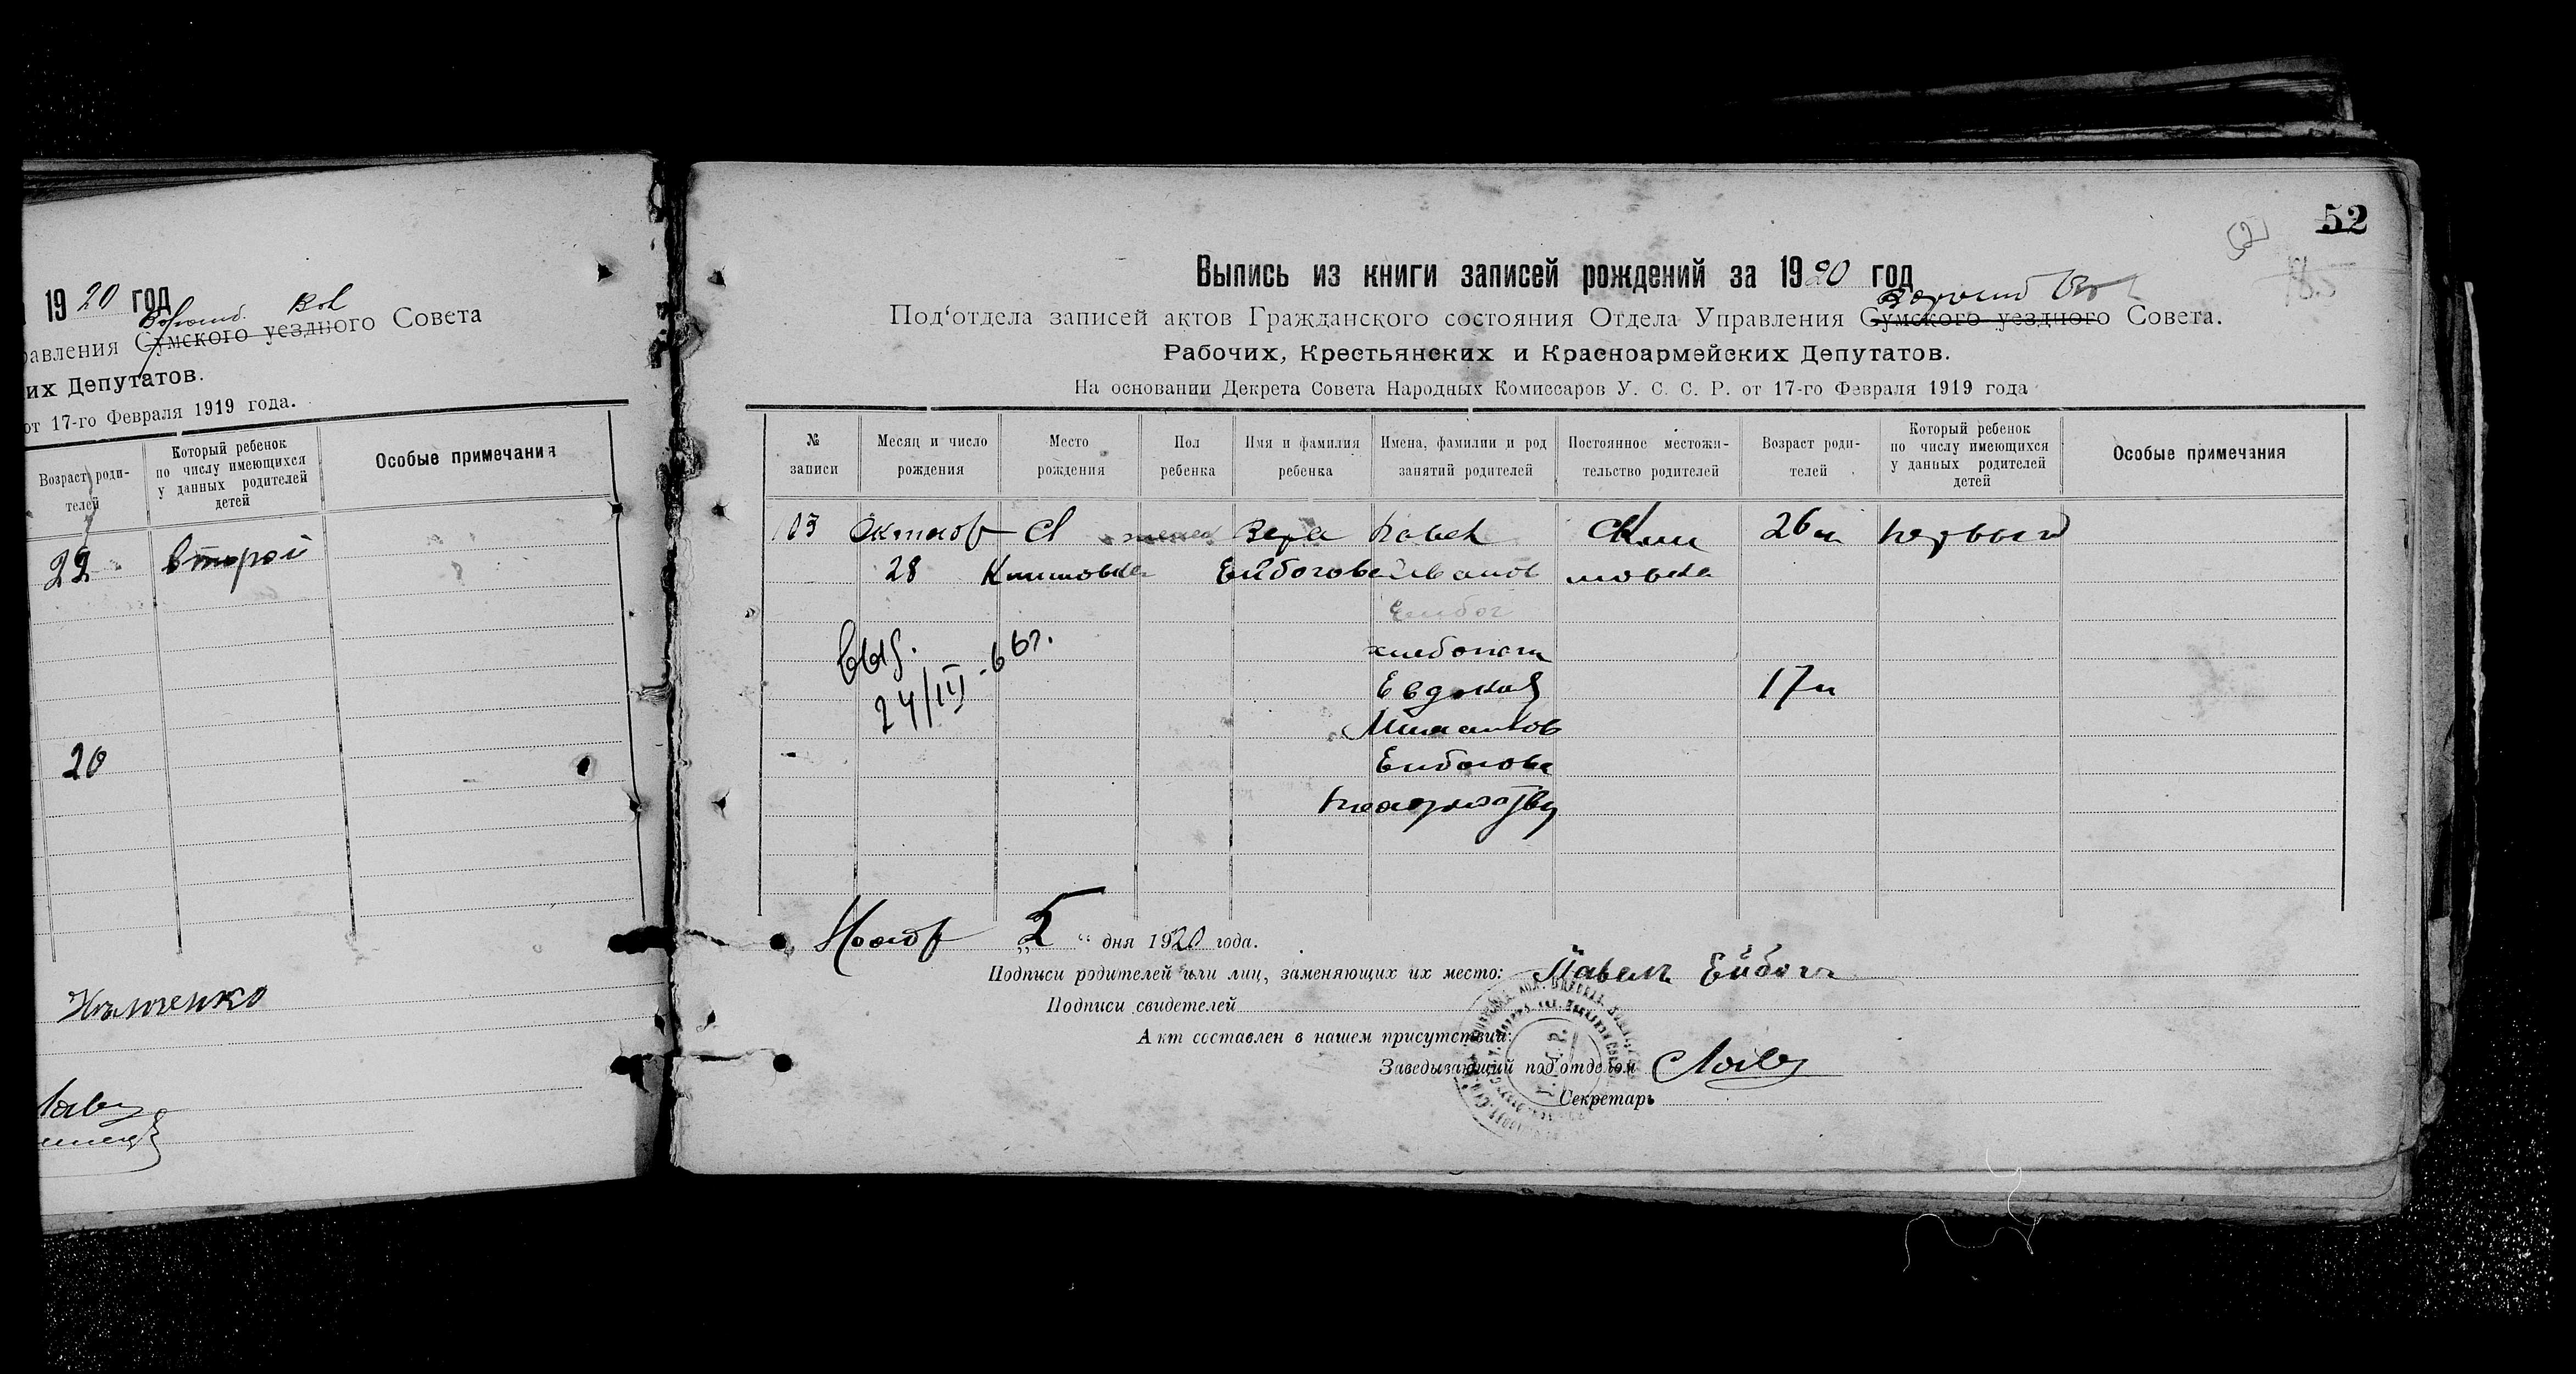 19 20 год
Волост. Вол
равления Сумского уездного Совета
их Депутатов.
от 17-го Февраля 1919 года.
Возраст роди-
телей
Который ребенок
по числу имеющихся
у данных родителей
детей
Особые примечания
22 второй
20
52
Выпись из книги записей рождений за 1920 год
Под‘отдела записей актов Гражданского состояния Отдела Управления Сумского уездного Совета.
Рабочих, Крестьянских и Красноармейских Депутатов.
На основании Декрета Совета Народных Комиссаров У. С. С. Р. от 17-го Февраля 1919 года
№
записи
Месяц и число
рождения
Место
рождения
Пол
ребенка
Имя и фамилия
ребенка
Имена, фамилии и род
занятий родителей
Постоянное местожи-
тельство родителей
Возраст роди-
телей
Который ребенок
по числу имеющихся
у данных родителей
детей
Особые примечания
103 Октяб С женск Вера Павел С Кли 26 л первый
28 Климовка Ейбогова Иванов мовка
Ейбог
хлебопаш
Евдокия 17 л
Ейбогова
выд.
24/III-66г.
Нояб „2“ дня 1920 года.
Подписи родителей или лиц, заменяющих их место: Павел Ейбог
Подписи свидетелей
Акт составлен в нашем присутствии:
Заведывающий под‘отделом
Секретарь